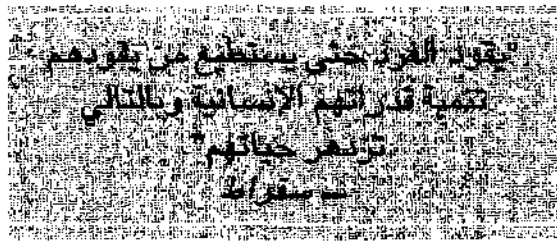 "يقود الفرد حتى يستطيع من يقودهم
تنمية قدراتهم الإنسانية وبالتالي
تزدهر حياتهم"
سقراط